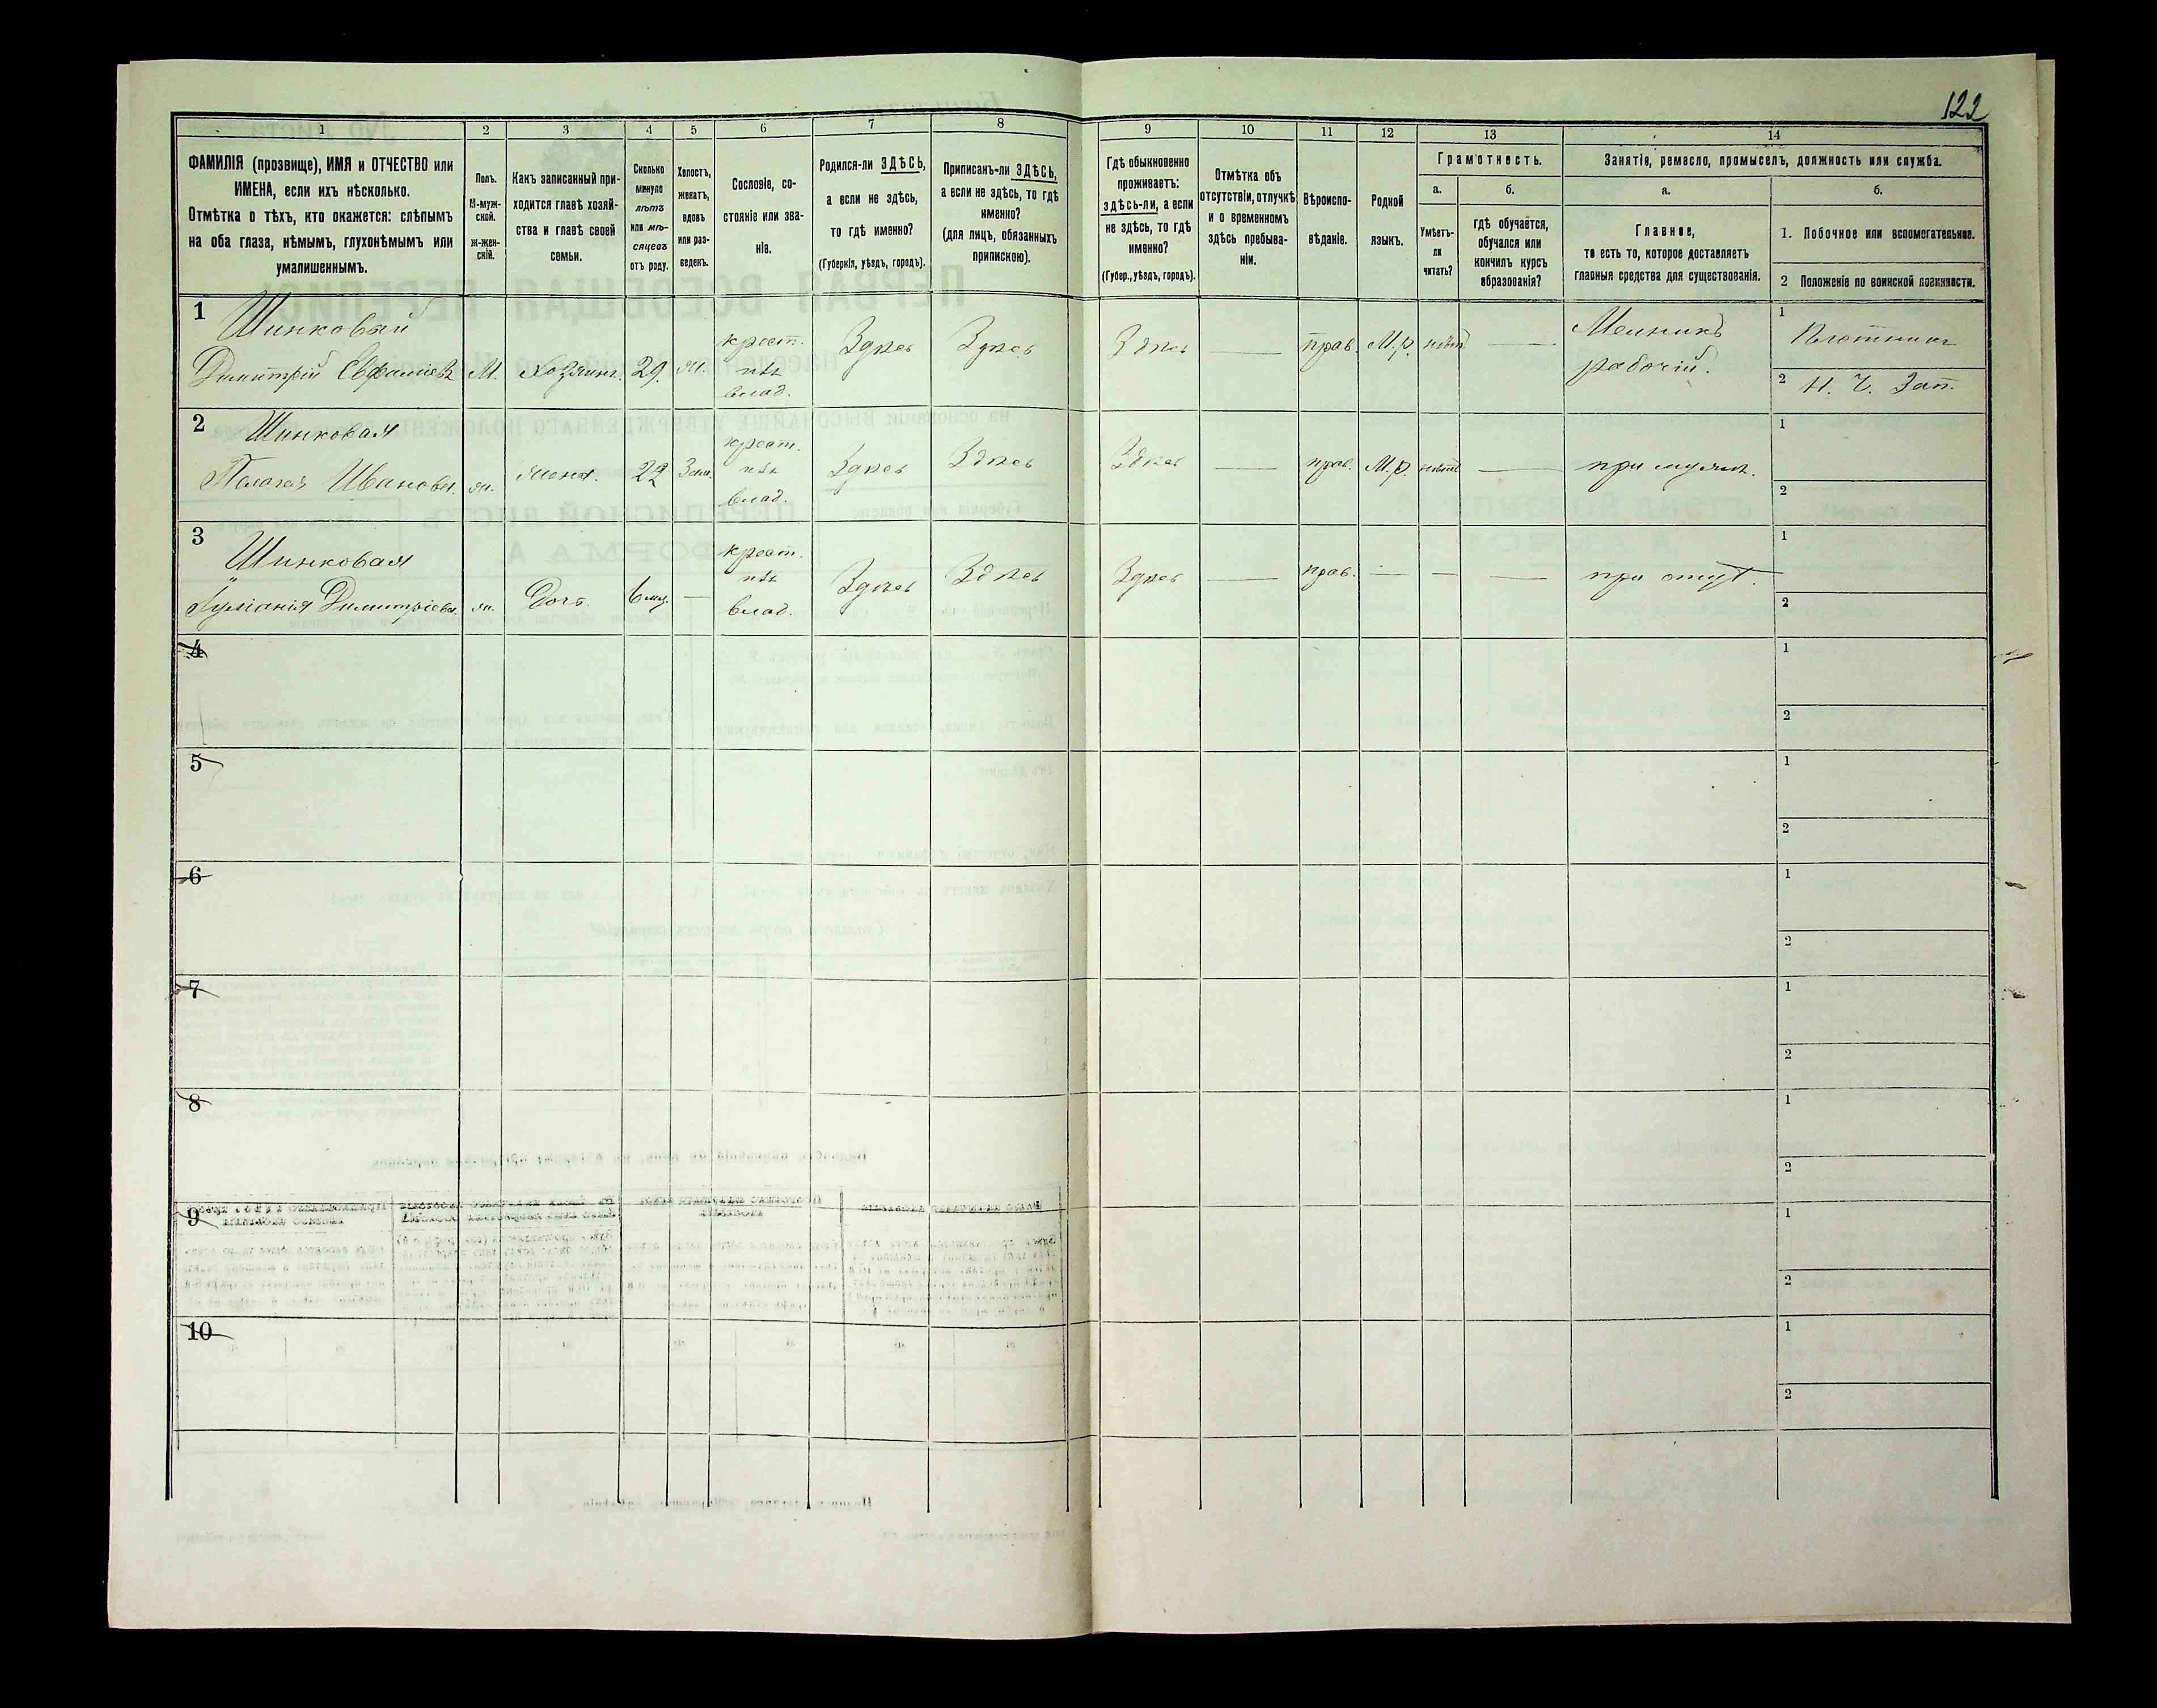 122
1
2
3
4
5
6
7
8
9
10
11
12
13
14
ФАМИЛІЯ (прозвище), ИМЯ и ОТЧЕСТВО или
ИМЕНА, если ихъ нѣсколько.
Отмѣтка о тѣхъ, кто окажется: слѣпымъ
на оба глаза, нѣмымъ, глухонѣмымъ или
умалишеннымъ.
Полъ.
М-муж-
ской.
ж-жен-
скій.
Какъ записанный при-
ходится главѣ хозяй-
ства и главѣ своей
семьи.
Сколько
минуло
лѣтъ
или мѣ-
сяцевъ
отъ роду.
Холостъ,
женатъ,
вдовъ
или раз-
веденъ.
Сословіе, со-
стояніе или зва-
ніе.
Родился-ли ЗДѢСЬ,
а если не здѣсь,
то гдѣ именно?
(Губернія, уѣздъ, городъ).
Приписанъ-ли ЗДѢСЬ,
а если не здѣсь, то гдѣ
именно?
(для лицъ, обязанныхъ
припискою).
Гдѣ обыкновенно
проживаетъ:
здѣсь-ли, а если
не здѣсь, то гдѣ
именно?
(Губер., уѣздъ, городъ).
Отмѣтка объ
отсутствіи, отлучкѣ
и о временномъ
здѣсь пребыва-
ніи.
Вѣроиспо-
вѣданіе.
Родной
языкъ.
Грамотность.
а.
б.
Умѣетъ-
ли
читать?
гдѣ обучается,
обучался или
кончилъ курсъ
образованія?
Занятіе, ремесло, промыселъ, должность или служба.
а.
б.
Главное,
то есть то, которое доставляетъ
главныя средства для существованія.
1. Побочное или вспомогательное.
2 Положеніе по воинской повинности.
1
Шинковый
Димитрій
М.
Хозяинъ.
29.
ж.
крест.
влад.
Здѣсь
Здѣсь
Здѣсь
прав.
М.р.
нѣтъ
рабочій.
1
Плотникъ
2
Н. Ч. Зап.
2
Шинковая
Иванова.
ж.
жена.
22
Зам.
крест.
влад.
Здѣсь
Здѣсь
Здѣсь
прав.
М.р.
нѣтъ
при мужѣ.
1
2
3
Шинковая
Димитріева.
ж.
Дочь.
6 мц.
крест.
влад.
Здѣсь
Здѣсь
Здѣсь
прав.
при отцѣ.
1
2
4
1
2
5
1
2
6
1
2
7
1
2
8
1
2
9
1
2
10
1
2